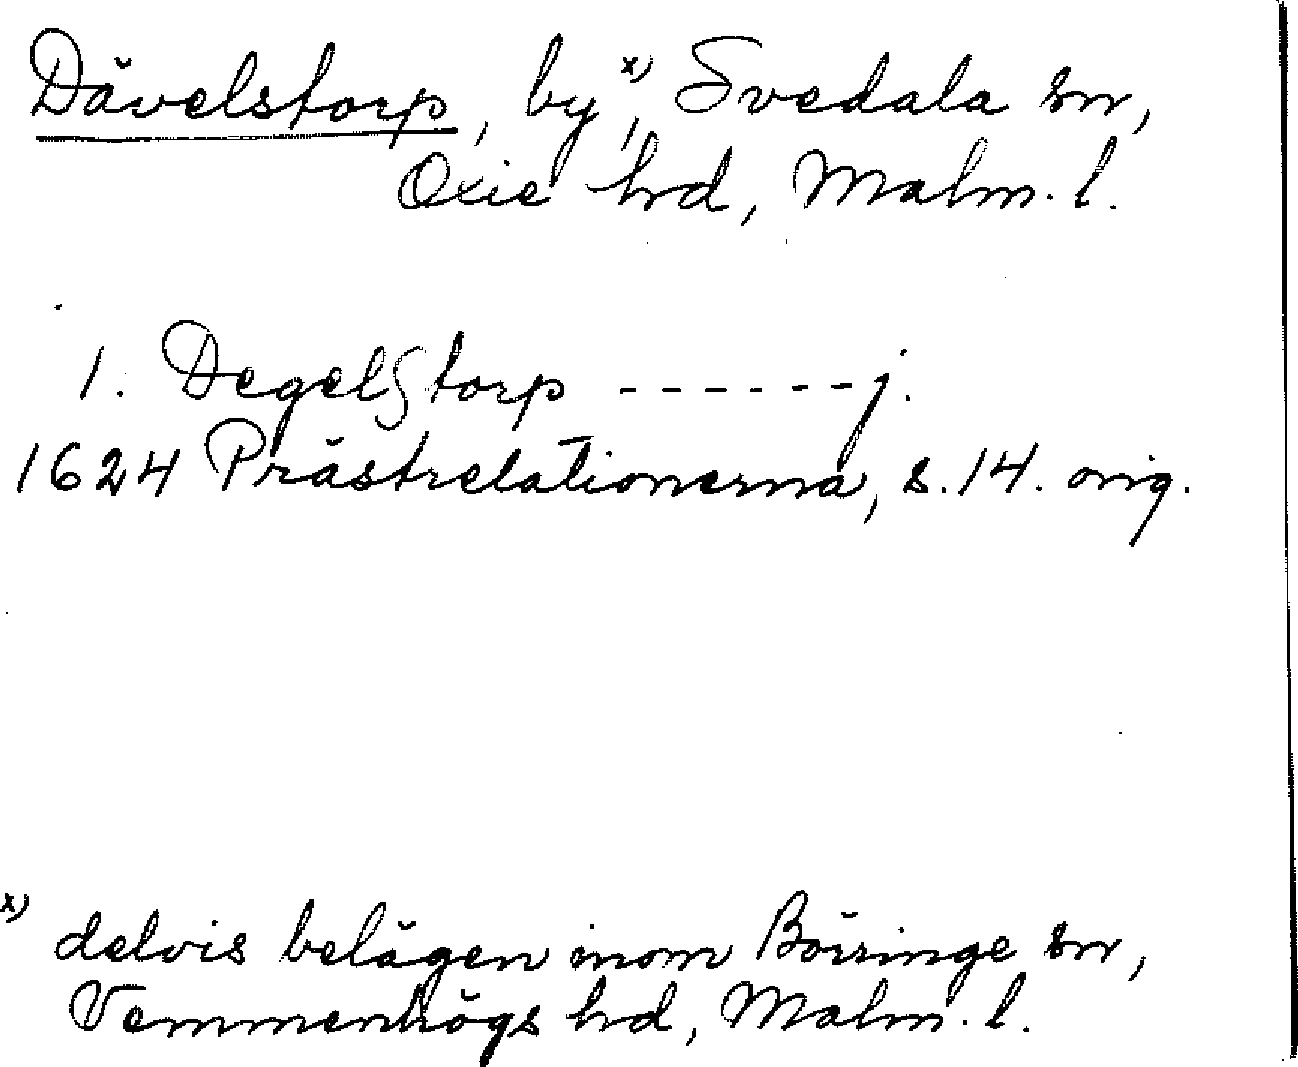 Dävelstorp, by x), Svedala sn,
Oxie hd, Malm. l.
1. Degelstorp ------ j.
1624 Prästrelationerna, s. 14. orig.
x) delvis belägen inom Börringe sn,
Vemmenhögs hd, Malm. l.